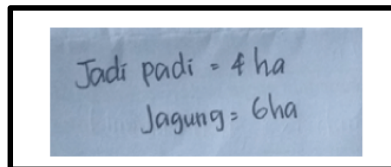 Jadi padi = 4 ha
Jagung = 6ha